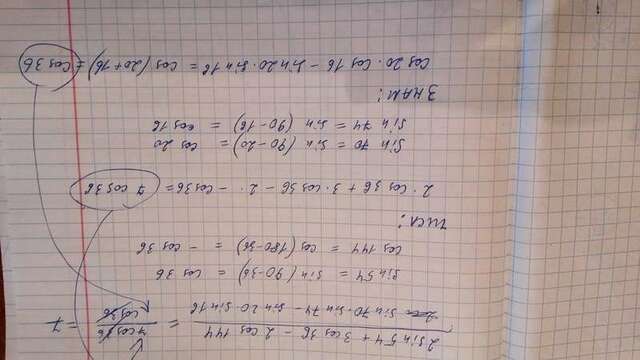 2 sin 54 + 3 cos 36 - 2 cos 144 / sin 70 · sin 74 - sin 20 · sin 16 = 7 cos 36 / cos 36 = 7
sin 54 = sin (90-36) = cos 36
cos 144 = cos (180-36) = - cos 36
числ:
2 · cos 36 + 3 · cos 36 - 2 · - cos 36 = 7 cos 36
sin 70 = sin (90-20) = cos 20
sin 74 = sin (90-16) = cos 16
Знам:
cos 20 · cos 16 - sin 20 · sin 16 = cos (20+16) = cos 36